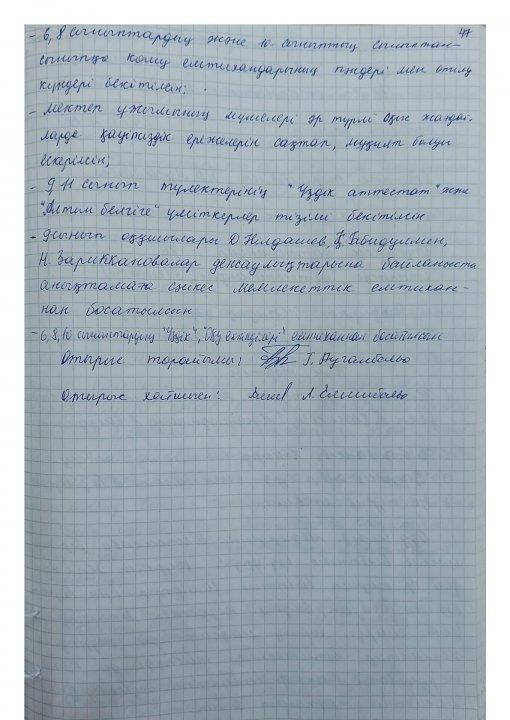 47
- 6, 8 сыныптардың және 10 сыныптың сыныптан-
сыныпқа көшу емтихандарының пәндері мен өтілу
күндері бекітілсін;
- мектеп ұжымының мүшелері әр түрлі оқыс жағдай-
ларда қауіпсіздік ережелерін сақтап, мұқият болуы
ескерілсін;
- 9, 11 сынып түлектерінің "Үздік аттестат" және
"Алтын белгіге" үміткерлер тізімі бекітілсін
- 9 сынып оқушылары Д Нелдашев, Ғ Ғибидуллин,
Н Зарикқановалар денсаулықтарына байланысты
анықтамаға сәйкес мемлекеттік емтихан-
нан босатылсын
- 6, 8, 10 сыныптардың "Үздік", "Оқу екпінділері" емтиханнан босатылсын
Отырыс төрайымы: Г.
Отырыс хатшысы: Л. Елешибаева